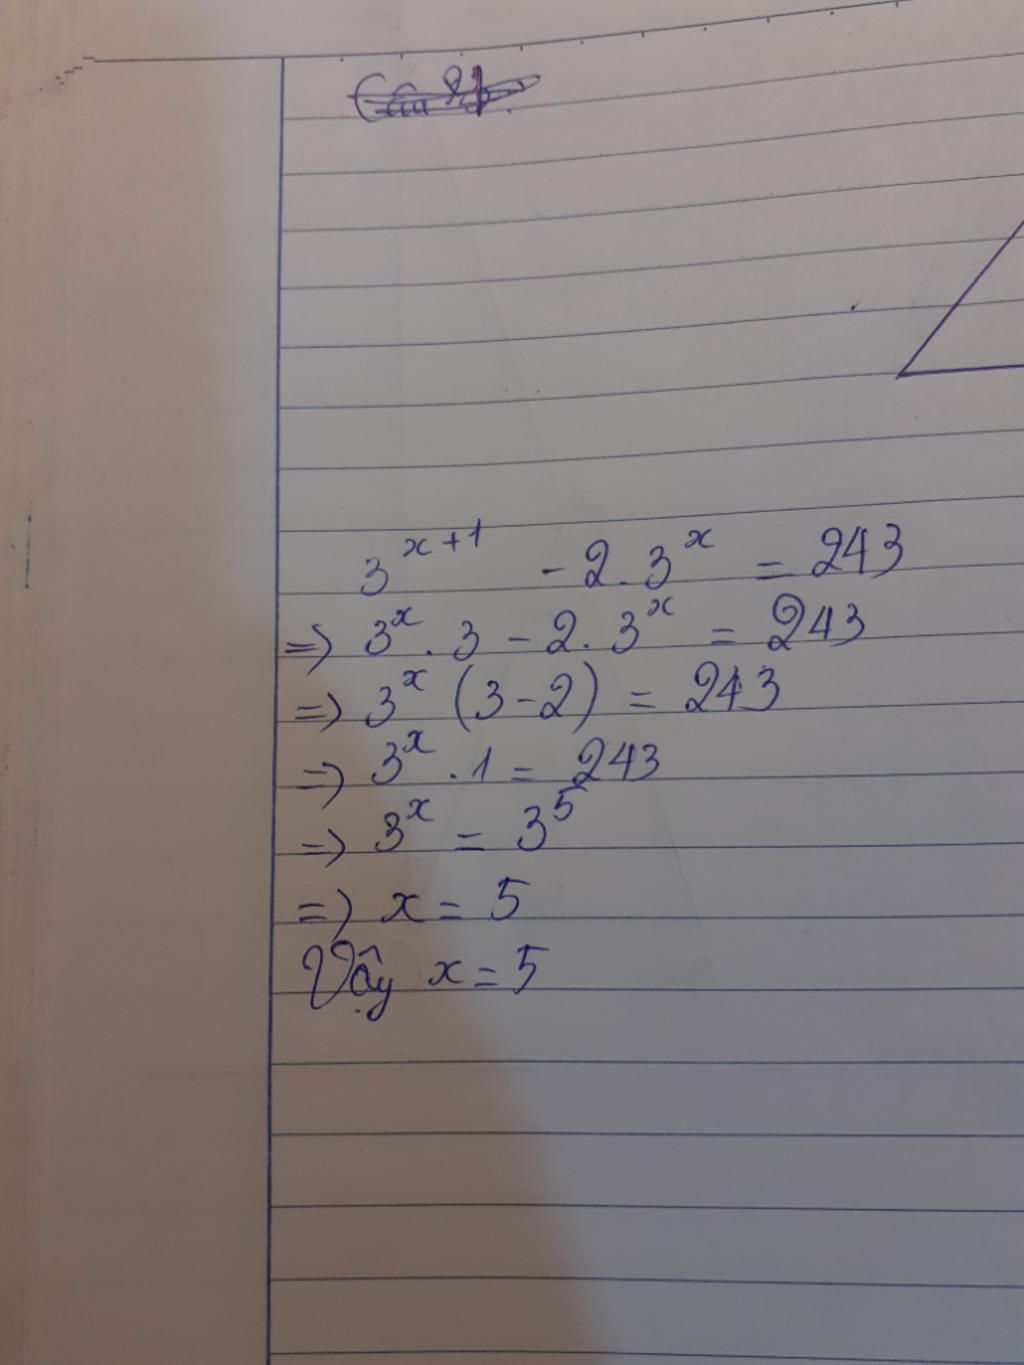 3^{x+1} - 2.3^x = 243
=> 3^x . 3 - 2.3^x = 243
=> 3^x (3-2) = 243
=> 3^x . 1 = 243
=> 3^x = 3^5
=> x = 5
Vậy x = 5